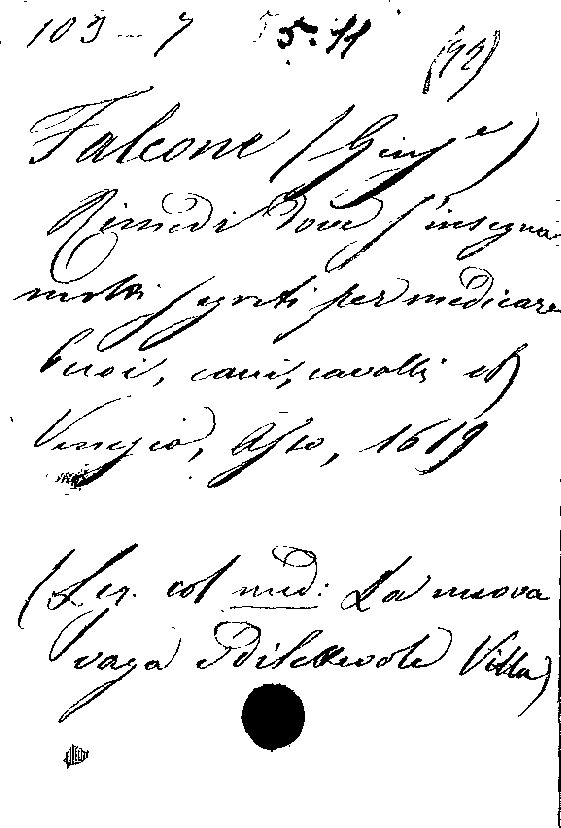 103-7 5.11
(92)
Falcone (Giuse)
Rimedi dove s'insegna
molti segreti per medicare
buoi, cani, cavalli et
Venezia, Usso, 1619
(Leg. col med: La nuova
vaga e dilettevole Villa)